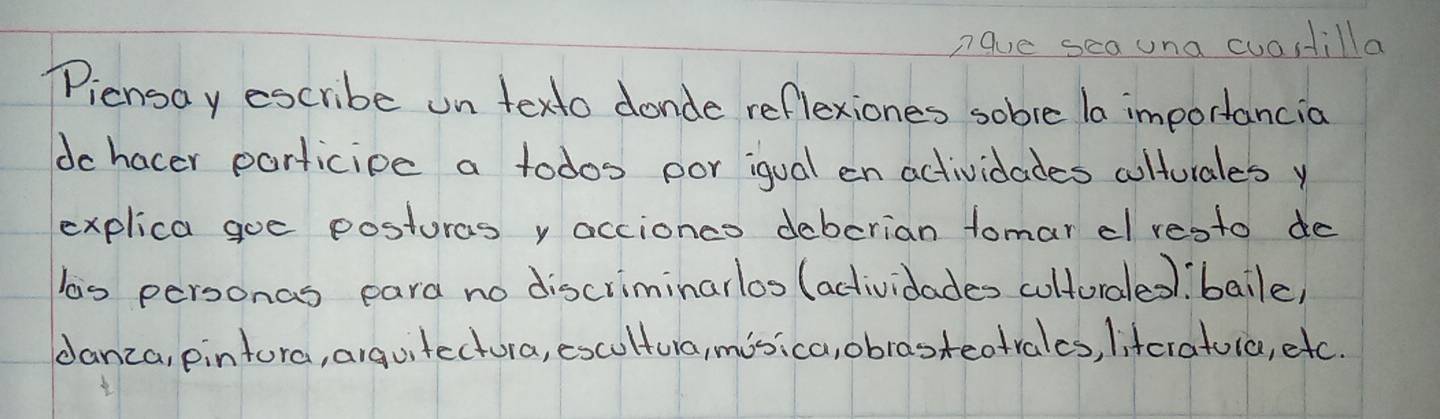 ↗que sea una cuartilla
Piensa y escribe un texto donde reflexiones sobre la importancia
de hacer participe a todos por igual en actividades culturales y
explica que posturas y acciones deberian tomar el resto de
las personas para no discriminarlos (actividades culturales): baile,
danza, pintura, arquitectura, escultura, música, obras teatrales, literatura, etc.